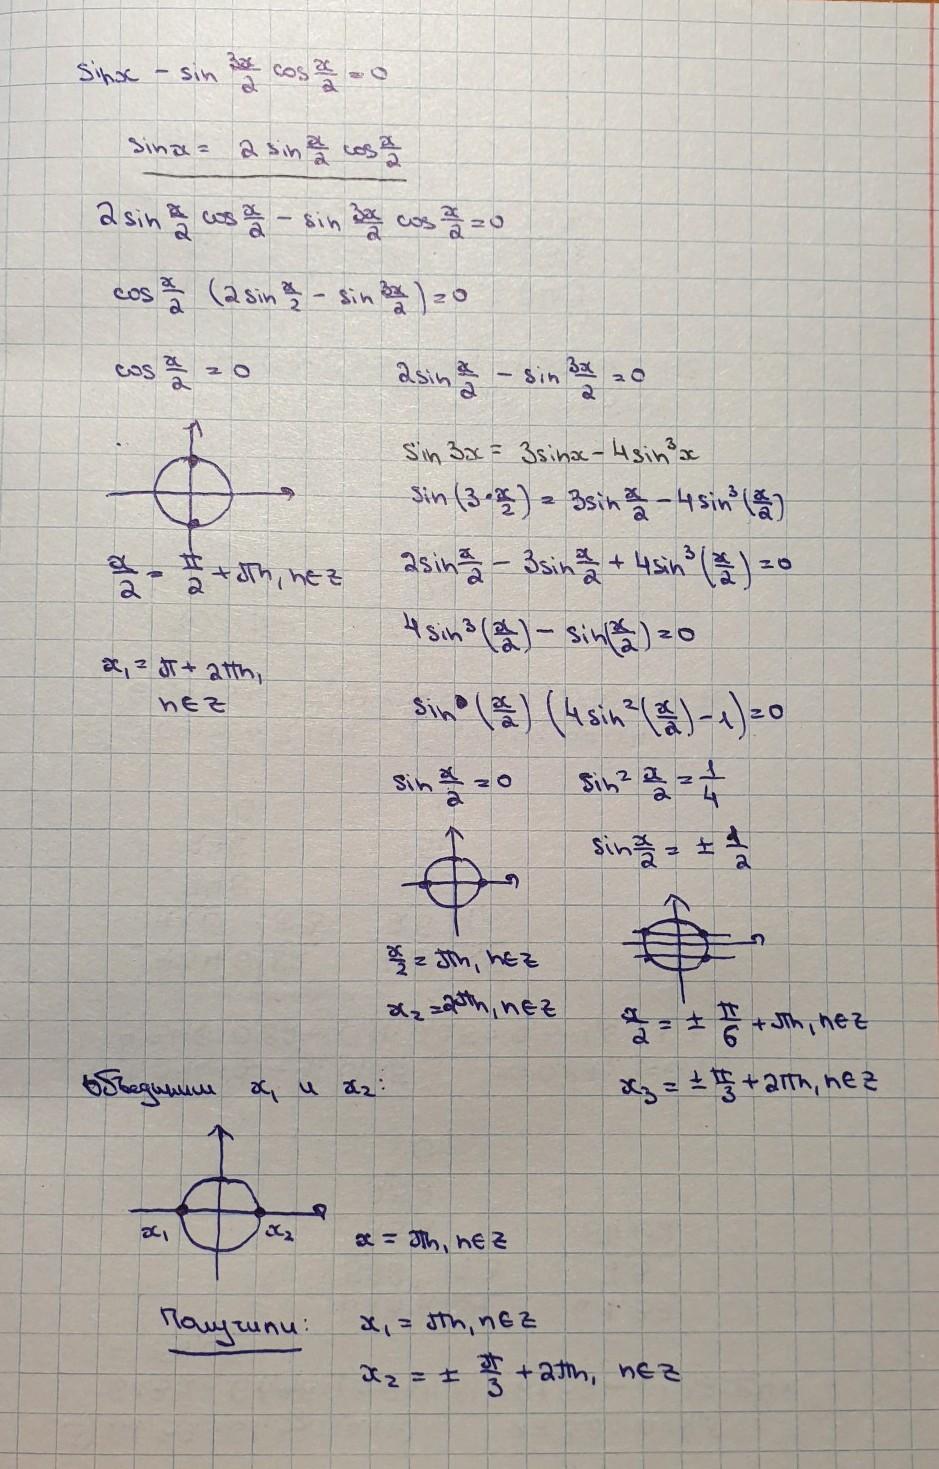 sinx - sin 3x/2 cos x/2 = 0
sinx = 2 sin x/2 cos x/2
2 sin x/2 cos x/2 - sin 3x/2 cos x/2 = 0
cos x/2 (2 sin x/2 - sin 3x/2) = 0
cos x/2 = 0
x/2 = π/2 + πn, n∈Z
x₁ = π + 2πn,
n∈Z
2sin x/2 - sin 3x/2 = 0
sin 3x = 3sinx - 4sin³x
sin (3·x/2) = 3sin x/2 - 4sin³(x/2)
2sin x/2 - 3sin x/2 + 4sin³(x/2) = 0
4sin³(x/2) - sin(x/2) = 0
sin (x/2) (4sin²(x/2) - 1) = 0
sin x/2 = 0
x/2 = πn, n∈Z
x₂ = 2πn, n∈Z
sin² x/2 = 1/4
sin x/2 = ± 1/2
x/2 = ± π/6 + πn, n∈Z
x₃ = ± π/3 + 2πn, n∈Z
Объединим x₁ и x₂:
x₁ x₂
x = πn, n∈Z
Получили: x₁ = πn, n∈Z
x₂ = ± π/3 + 2πn, n∈Z